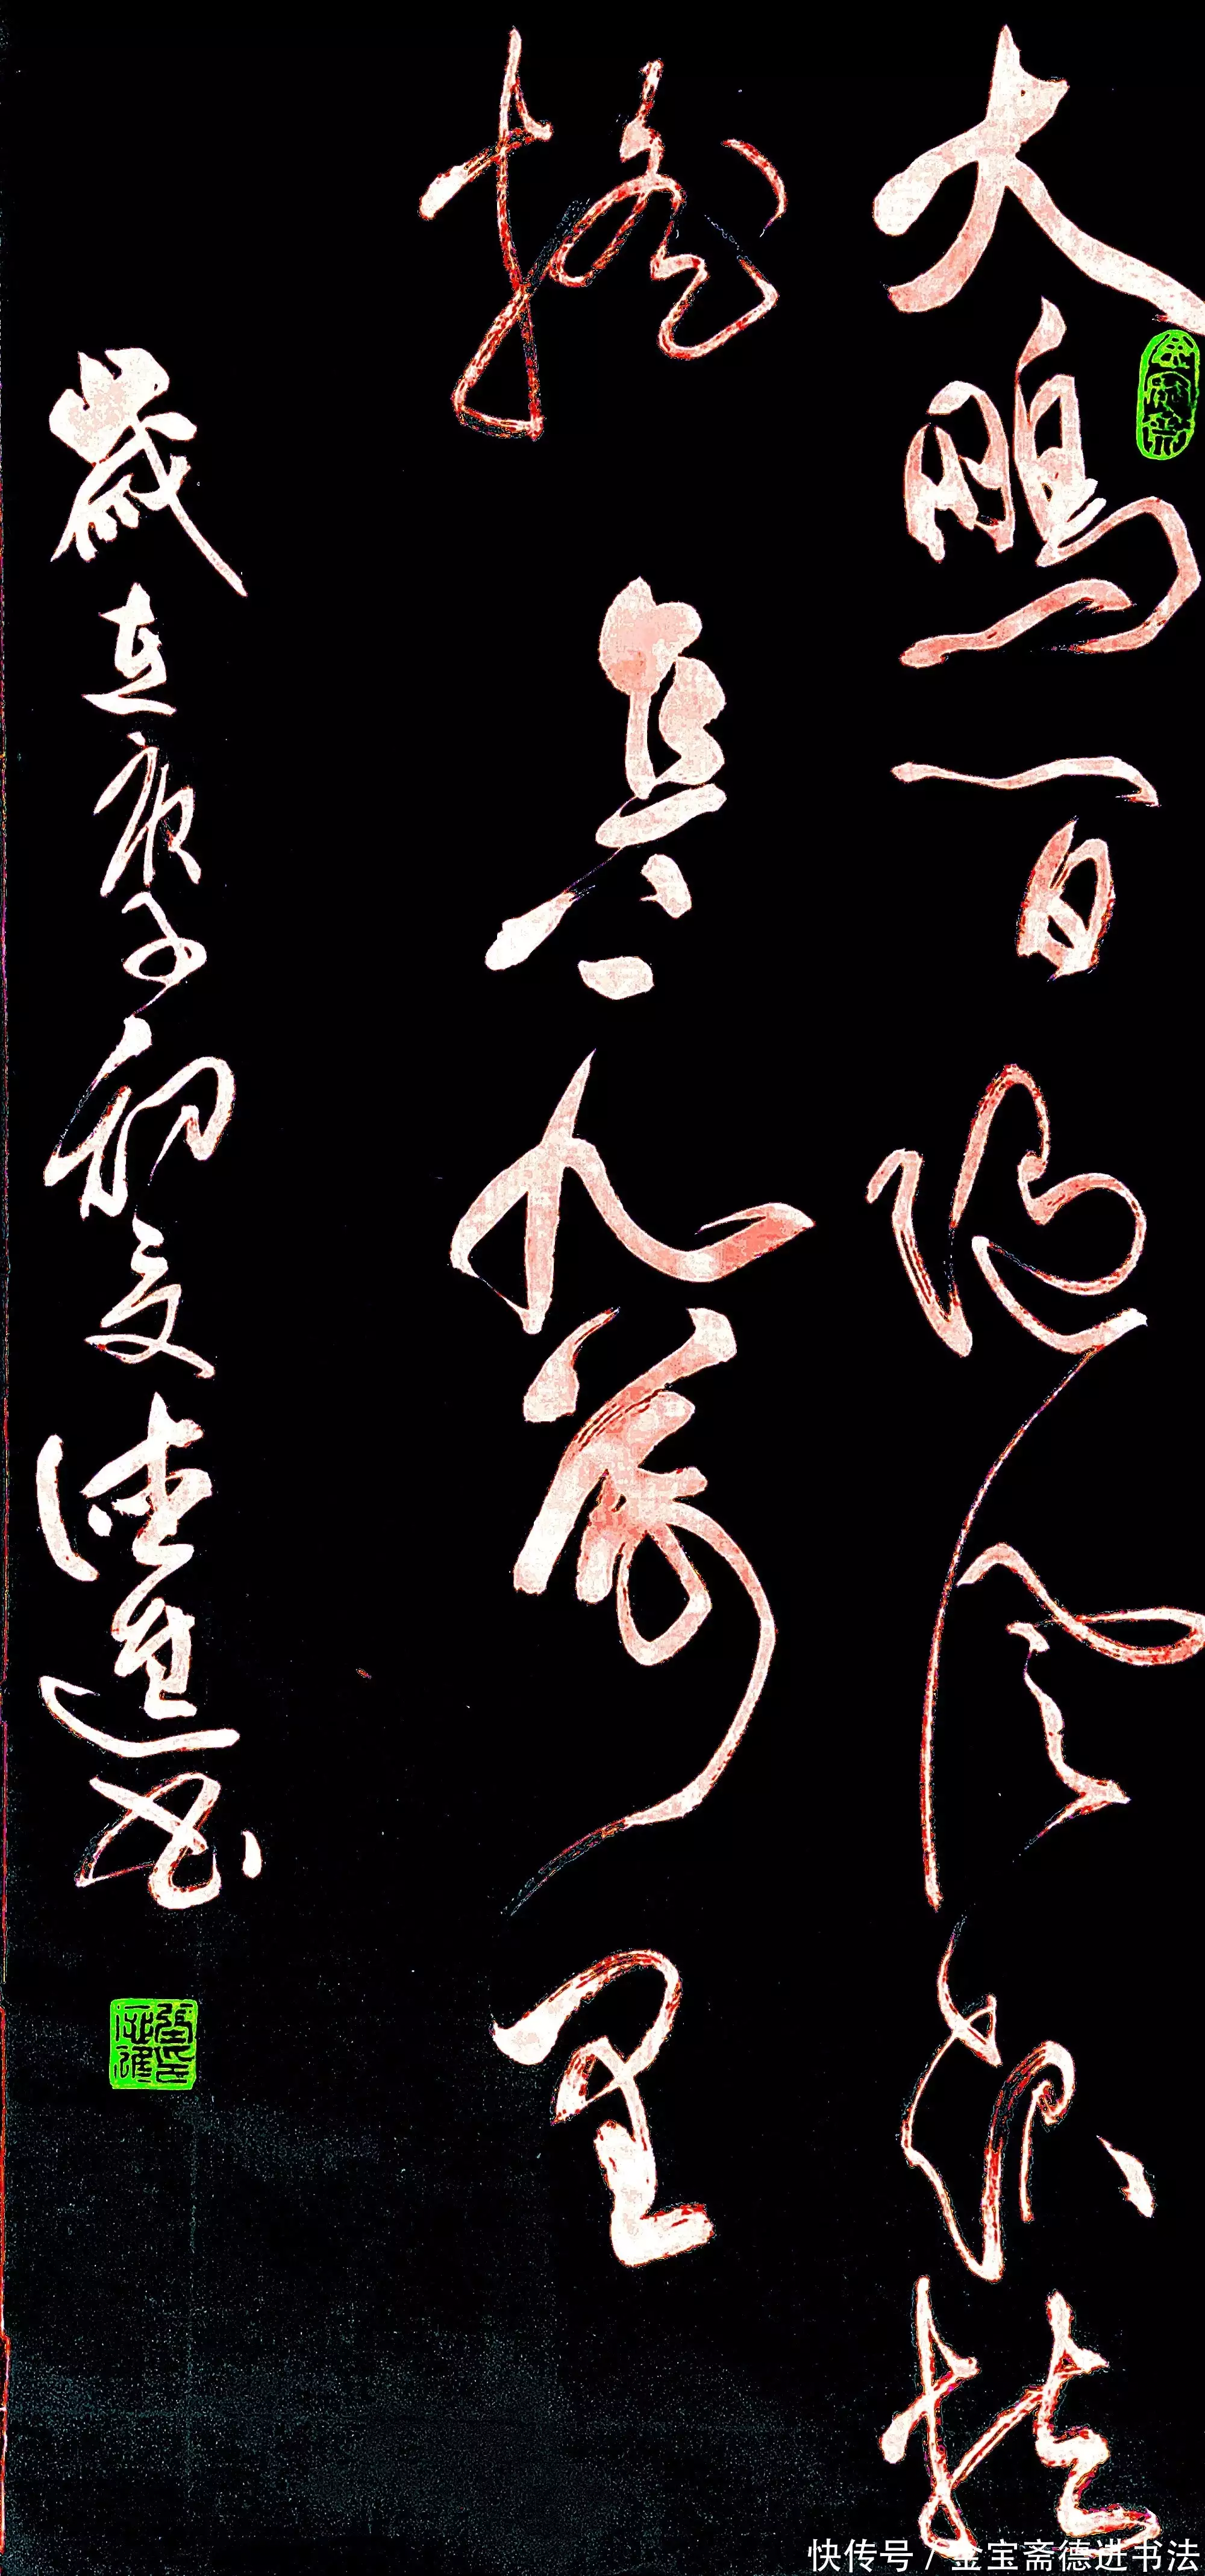 大鵬一日随风起扶
摇直上九萬里
歲在庚子初夏德進书
快传号 / 金宝斋德进书法